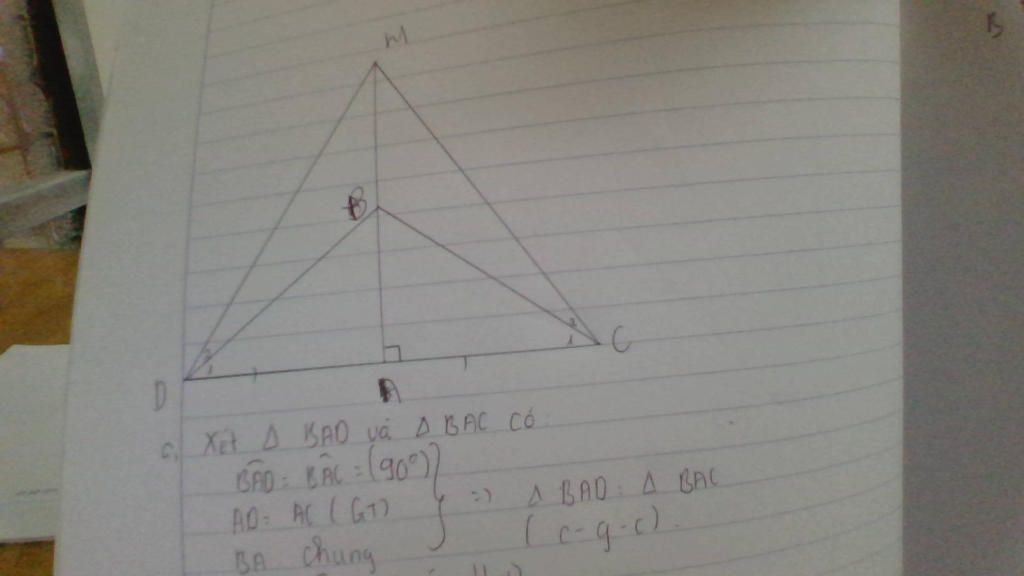 B
M
B
2
1
2
1
D
A
C
c, Xét Δ BAD và Δ BAC có:
BÂD = BÂC = (90°)
AD = AC (GT)
BA chung
=> Δ BAD = Δ BAC
(c-g-c).